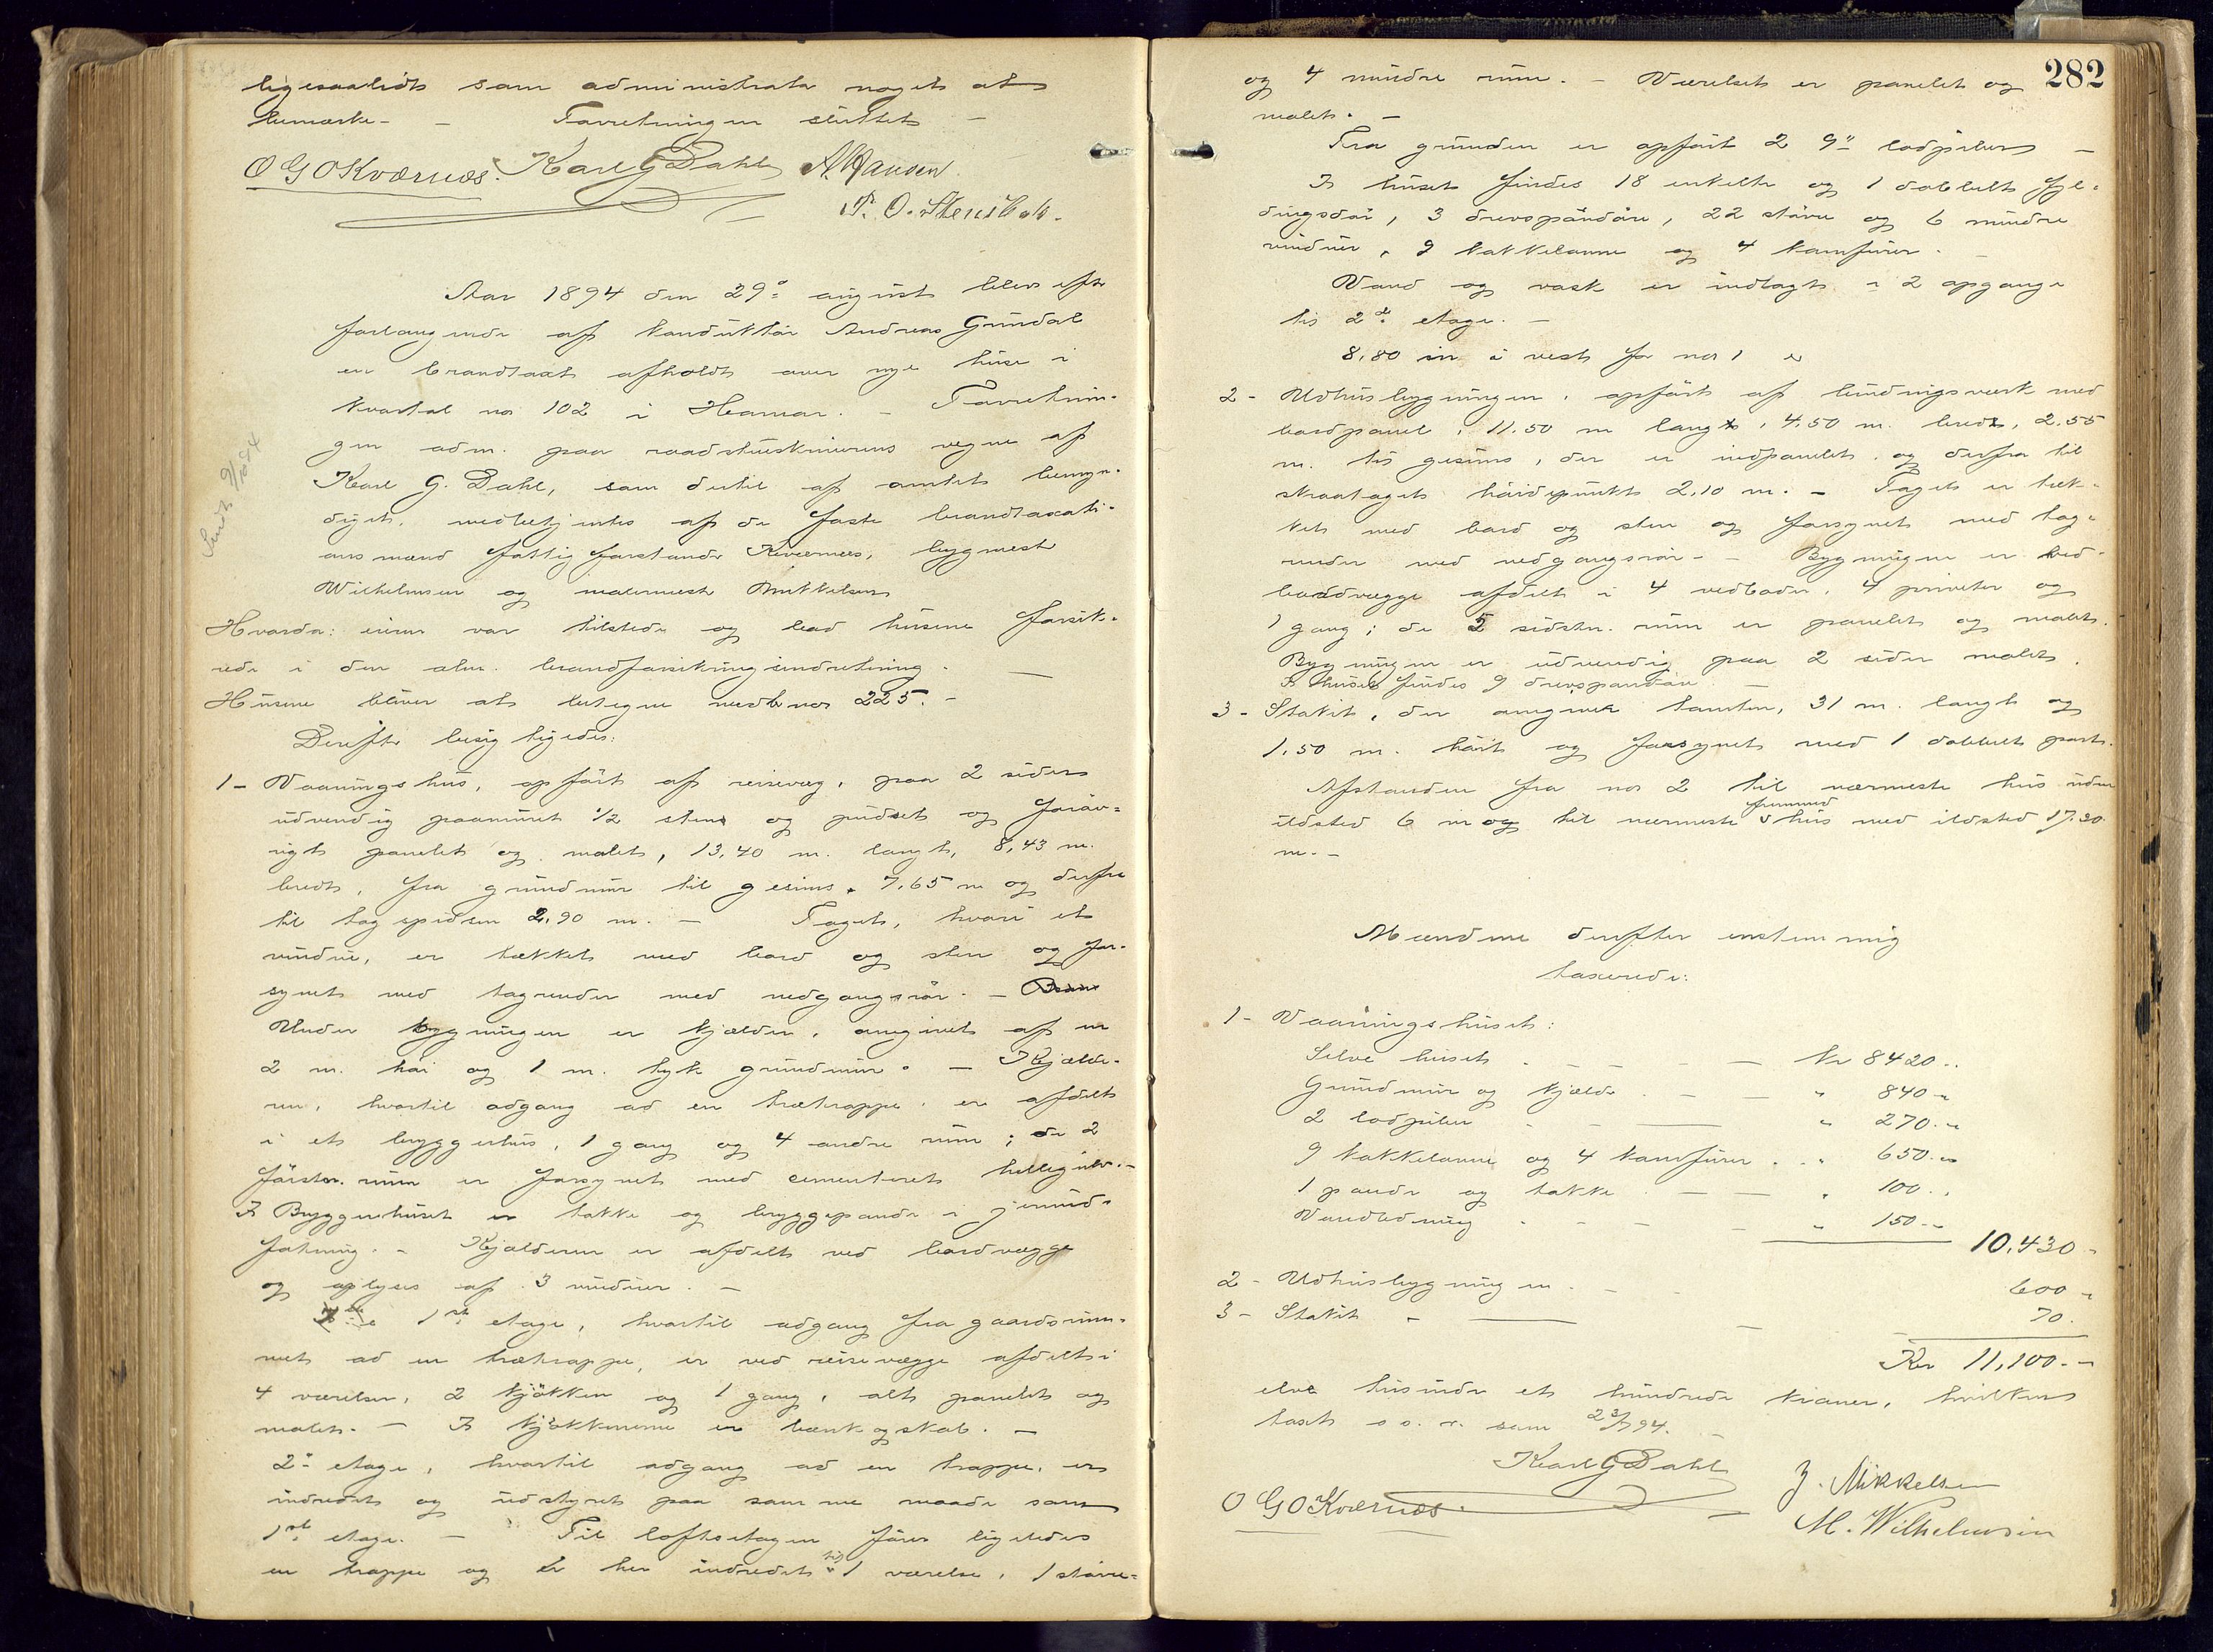 ligesaalidt som administrator noget at
bemærke. - Forretningen sluttet -
O G O Kværnæs. Karl G Dahl A. Hansen
P. O. Stensbak.
Aar 1894 den 29de august blev efter
forlangende af konduktør Andreas Gründal
en brandtaxt afholdt over nye huse i
kvartal no 102 i Hamar. - Forretnin-
gen adm. paa raadstueskriverens vegne af
Karl G. Dahl, som dertil af amtet bemyn-
diget, medbetjentes af de faste brandtaxati-
onsmænd fattigforstander Kværnæs, bygmester
Wilhelmsen og malermester Mikkelsen
Hvorda: eieren var tilstede og bad husene forsik-
rede i den alm. brandforsikringsindretning. -
Husene bliver at betegne med b no 225. -
Derefter besigtigedes:
1 - Vaaningshus, opført af reisverk, paa 2 sider
udvendig paamuret 1/2 sten og pudset og forøv-
rigt panelet og malet, 13,40 m. langt, 8,43 m.
bredt, fra grundmur til gesims 7,65 m og derfra
til tagspidsen 2,90 m. - Taget, hvori et
vindue, er tækket med bord og sten og for-
synet med tagrender med nedgangsrør. -
Under bygningen er kjælder, omgivet af en
2 m. høi og 1 m. tyk grundmur. - Kjælde-
ren, hvortil adgang ad en trætrappe, er afdelt
i et bryggerhus, 1 gang og 4 andre rum; de 2
første rum er forsynet med cementeret hellegulv. -
I Bryggerhuset er takke og bryggepande i jernind-
fatning. - Kjælderen er afdelt ved bordvægge
og oplyses af 3 vinduer. -
1ste etage, hvortil adgang fra gaardsrum-
met ad en trætrappe, er ved reisevægge afdelt i
4 værelser, 2 kjøkken og 1 gang, alt panelet og
malet. - I kjøkkenerne er bænk og skab. -
2den etage, hvortil adgang ad en trappe, er
indredet og udstyret paa samme maade som
1ste etage. - Til loftsetagen fører ligeledes
en trappe og er her indredet til 1 værelse, 1 større
282
og 4 mindre rum. - Værelset er panelet og
malet. -
Fra grunden er opført 2 9" lodpiber -
I huset findes 18 enkelte og 1 dobbelt fyl-
dingsdør, 3 drevspandøre, 22 større og 6 mindre
vinduer, 9 kakkelovne og 4 komfurer. -
Vand og vask er indlagt i 2 opgange
til 2d etage. -
8,80 m i vest for no 1 er
2 - Udhusbygningen, opført af bindingsværk med
bordpanel, 11.50 m langt, 4.50 m. bredt, 2.55
m. til gesims, der er indpanelet, og derfra til
skraatagets høidepunkt 2,10 m. - Taget er tæk-
ket med bord og sten og forsynet med tag-
render med nedgangsrør. - Bygningen er ved
bordvægge afdelt i 4 vedboder, 4 priveter og
1 gang; de 5 sidste rum er panelet og malet.
Bygningen er udvendig paa 2 sider malet.
I huset findes 9 drevspandøre. -
3 - Stakit, der omgiver tomten, 31 m. langt og
1.50 m. høit og forsynet med 1 dobbelt port.
Afstanden fra no 2 til nærmeste hus uden
ildsted 6 m og til nærmeste fremmed hus med ildsted 17.30
m. -
Mændene derefter enstemmig
taxerede:
1 - Vaaningshuset:
Selve huset - - - - Kr 8420 ..
Grundmur og kjælder - - " 840 -
2 lodpiber - - " 270 -
9 kakkelovne og 4 komfurer . . " 650 -
1 pande og takke - - " 100 . .
Vandledning - - - - " 150 - 10,430 -
2 - Udhusbygningen - - 600 -
3 - Stakit - - 70.
Kr 11,100 -
elve tusinde et hundrede kroner, hvilken
taxt s. o. v. som 23/7 94.
Karl G Dahl J. Mikkelsen
O G O Kværnæs. M. Wilhelmsen